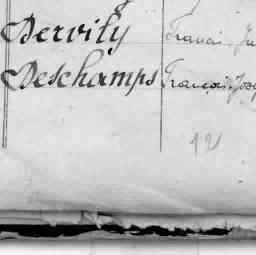 Dervily Francis
Deschamps François Jose
121